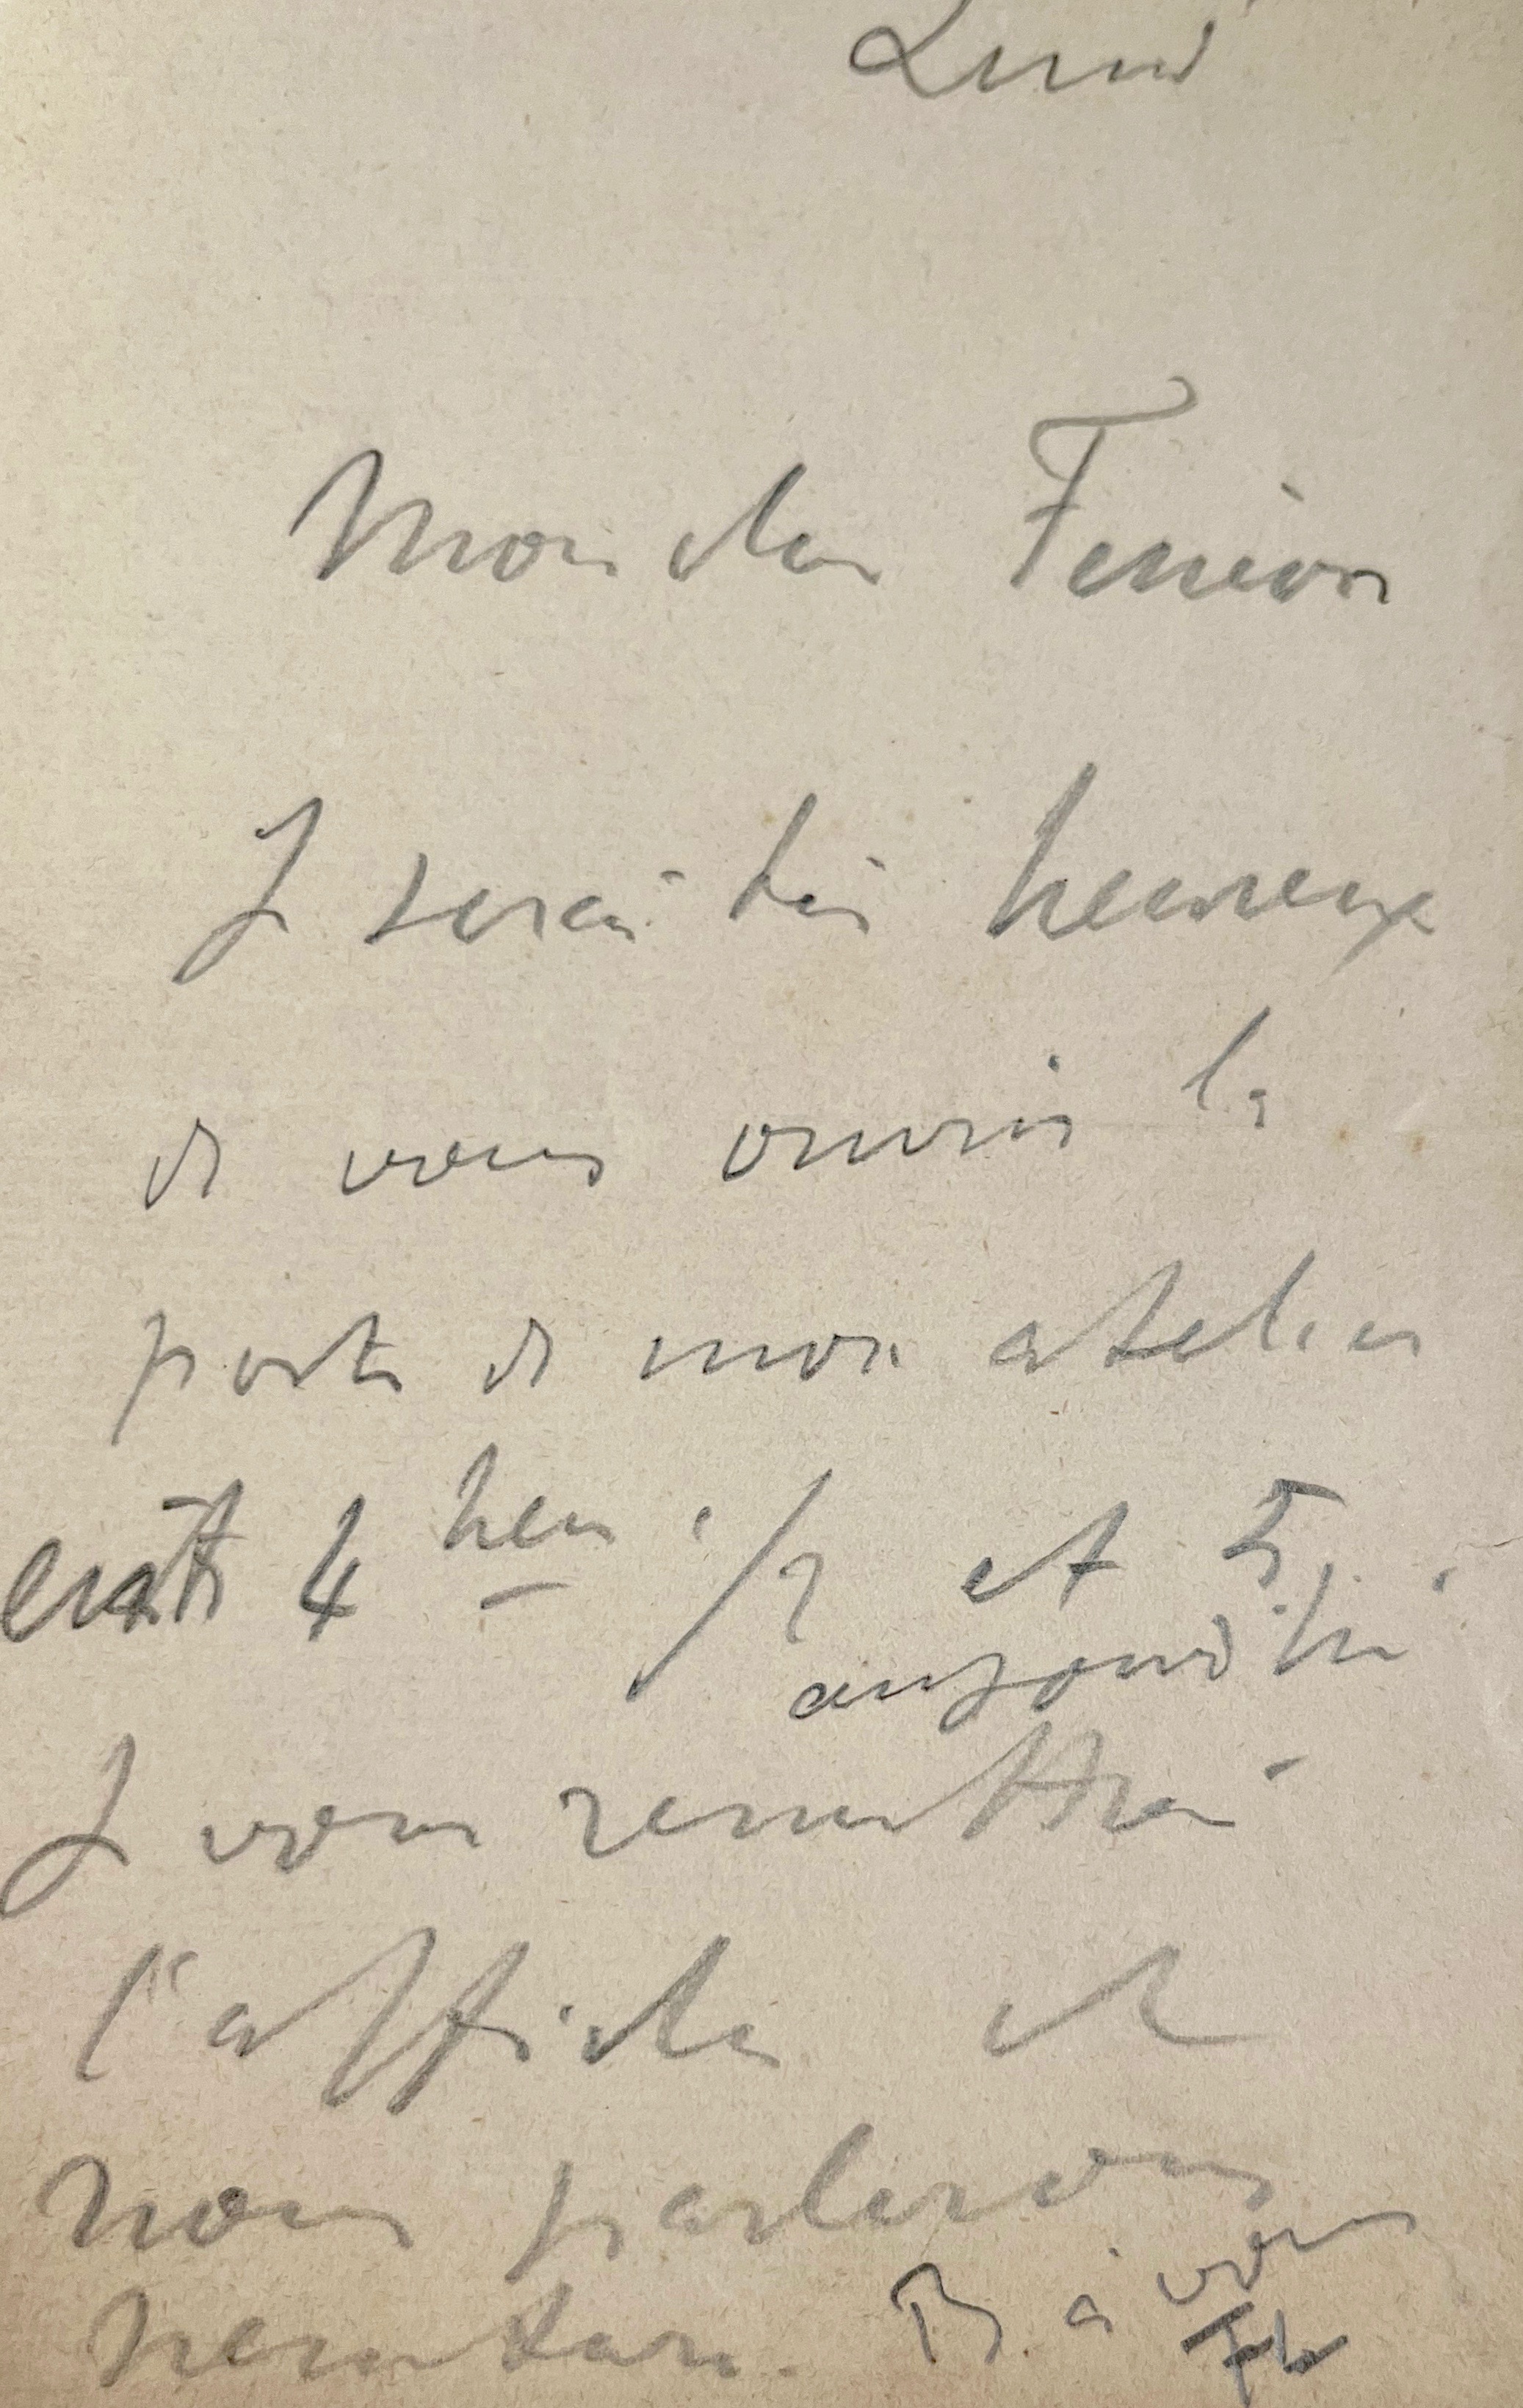 Lundi
Mon cher Fénéon
Je serai très heureux
de vous ouvrir la
porte de mon atelier
entre 4 heu 1/2 et 5 h.
aujourd'hui
Je vous remettrai
l'affiche et
nous parlerons
B. à vous